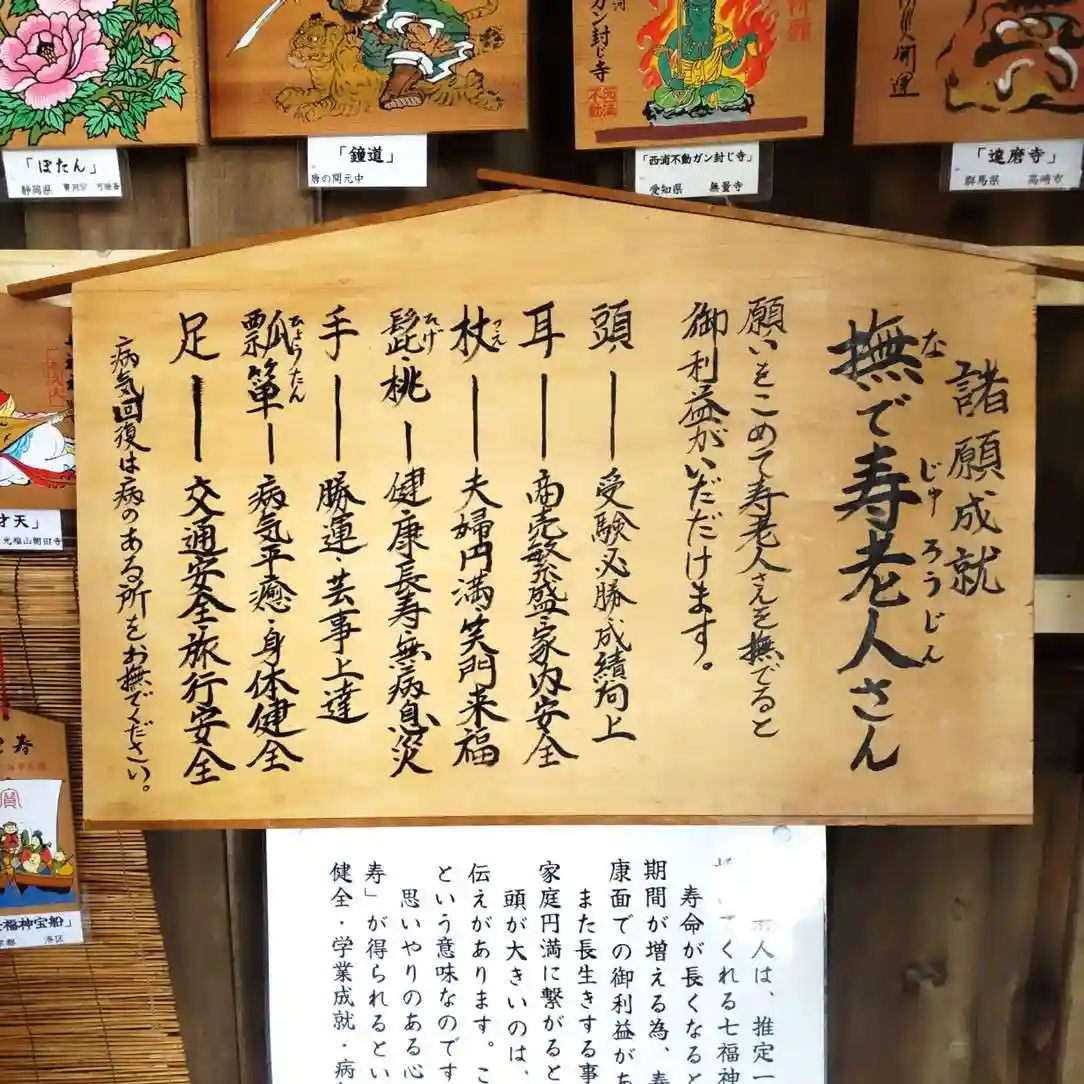 「ぼたん」
静岡県
「鐘道」
唐の開元中
ガン封じ寺
西浦不動
「西浦不動ガン封じ寺」
愛知県 無量寺
開運
「達磨寺」
群馬県 高崎市
諸願成就
撫で寿老人さん
な じゅろうじん
願いをこめて寿老人さんを撫でると
御利益がいだだけます。
頭―受験必勝成績向上
耳―商売繁盛・家内安全
杖―夫婦円満・笑門来福
つえ
髭・桃―健康長寿・無病息災
ひげ
手―勝運・芸事上達
瓢箪―病気平癒・身体健全
ひょうたん
足―交通安全・旅行安全
病気回復は病のある所をお撫でください。
才天」
福神宝船」
港区
人は、推定一
てくれる七福神
寿命が長くなると
期間が増える為、寿
康面での御利益があ
また長生きする事
家庭円満に繋がると
頭が大きいのは、
伝えがあります。こ
という意味なのです
思いやりのある心
寿」が得られるとい
健全・学業成就・病